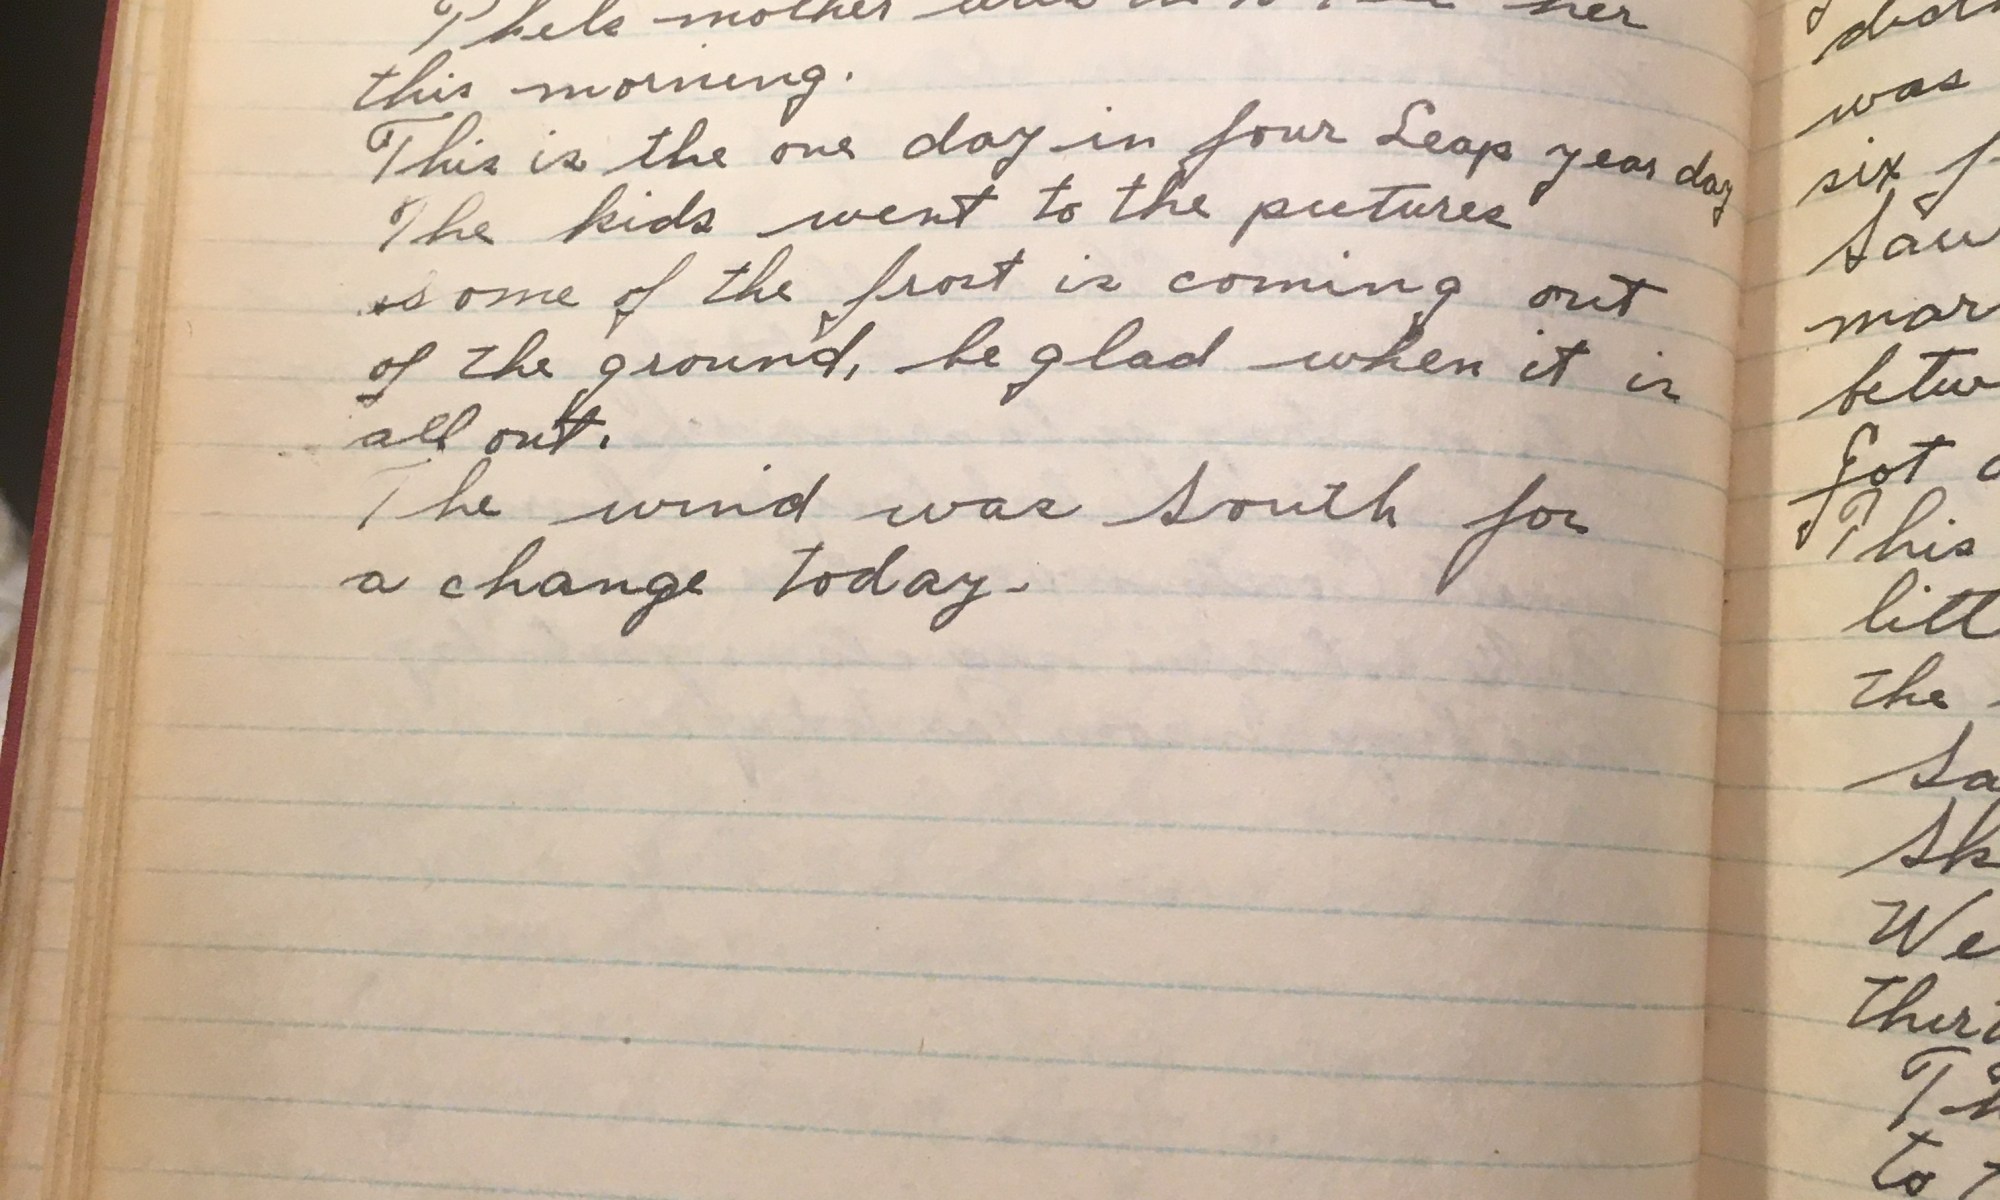 mother her
this morning.
This is the one day in four Leap year day
The kids went to the pictures
some of the frost is coming out
of the ground, be glad when it is
all out.
The wind was South for
a change today.
was
six
Saw
mar
betw
got
This
litt
the
Sa
Sk
We
ther
Th
to